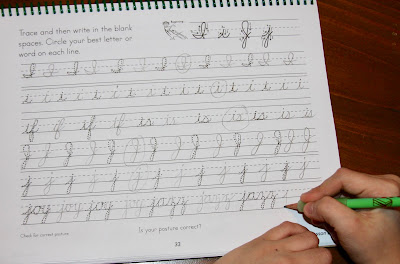 Trace and then write in the blank
spaces. Circle your best letter or
word on each line.
I i J j
I I I I I I I I I I I I
i i i i i i i i i i i i i i i
if if if if is is is is is is
J J J J J J J J J J J J
j j j j j j j j j j j j
joy joy joy joy jazz jazz jazz
Check for correct posture.
Is your posture correct?
32